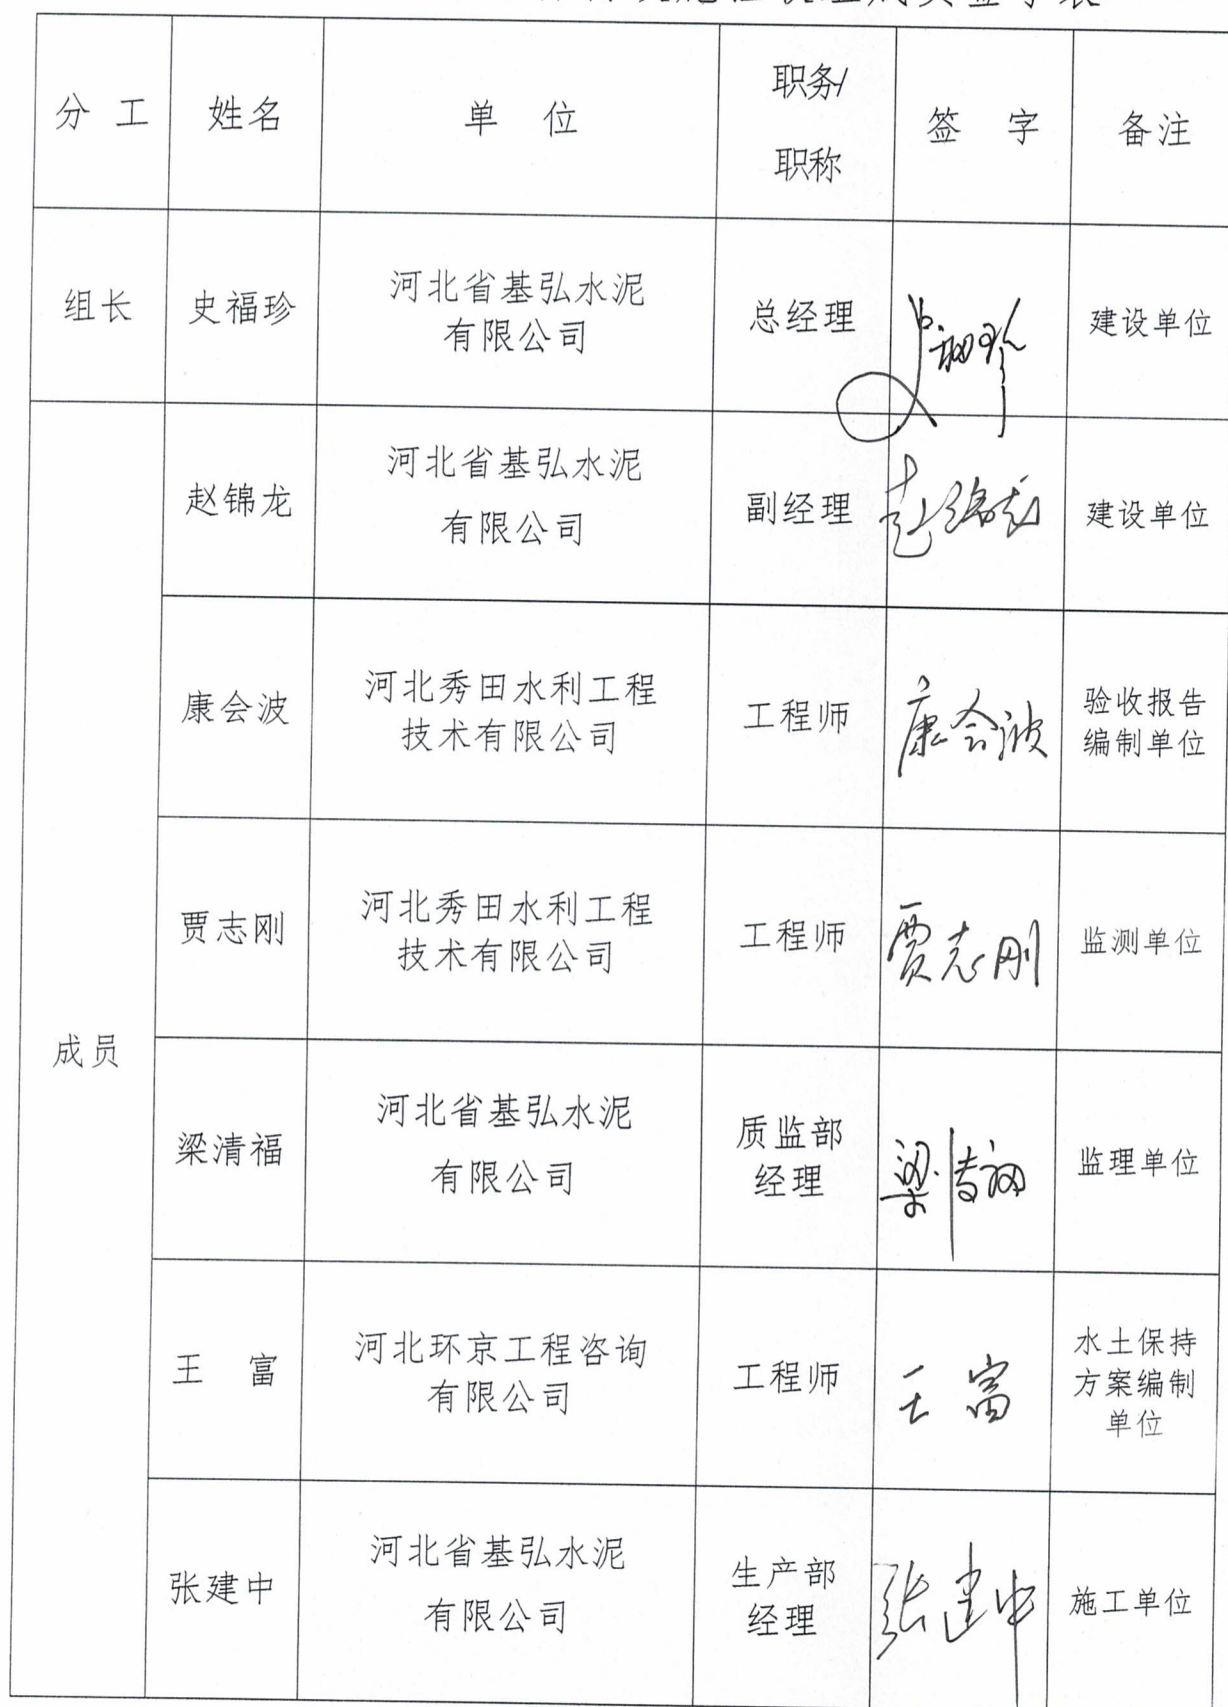 分 工
姓名
单 位
职务/
职称
签 字
备注
组长
史福珍
河北省基弘水泥
有限公司
总经理
史福珍
建设单位
成员
赵锦龙
河北省基弘水泥
有限公司
副经理
赵锦龙
建设单位
康会波
河北秀田水利工程
技术有限公司
工程师
康会波
验收报告
编制单位
贾志刚
河北秀田水利工程
技术有限公司
工程师
贾志刚
监测单位
梁清福
河北省基弘水泥
有限公司
质监部
经理
梁清福
监理单位
王 富
河北环京工程咨询
有限公司
工程师
王富
水土保持
方案编制
单位
张建中
河北省基弘水泥
有限公司
生产部
经理
张建中
施工单位